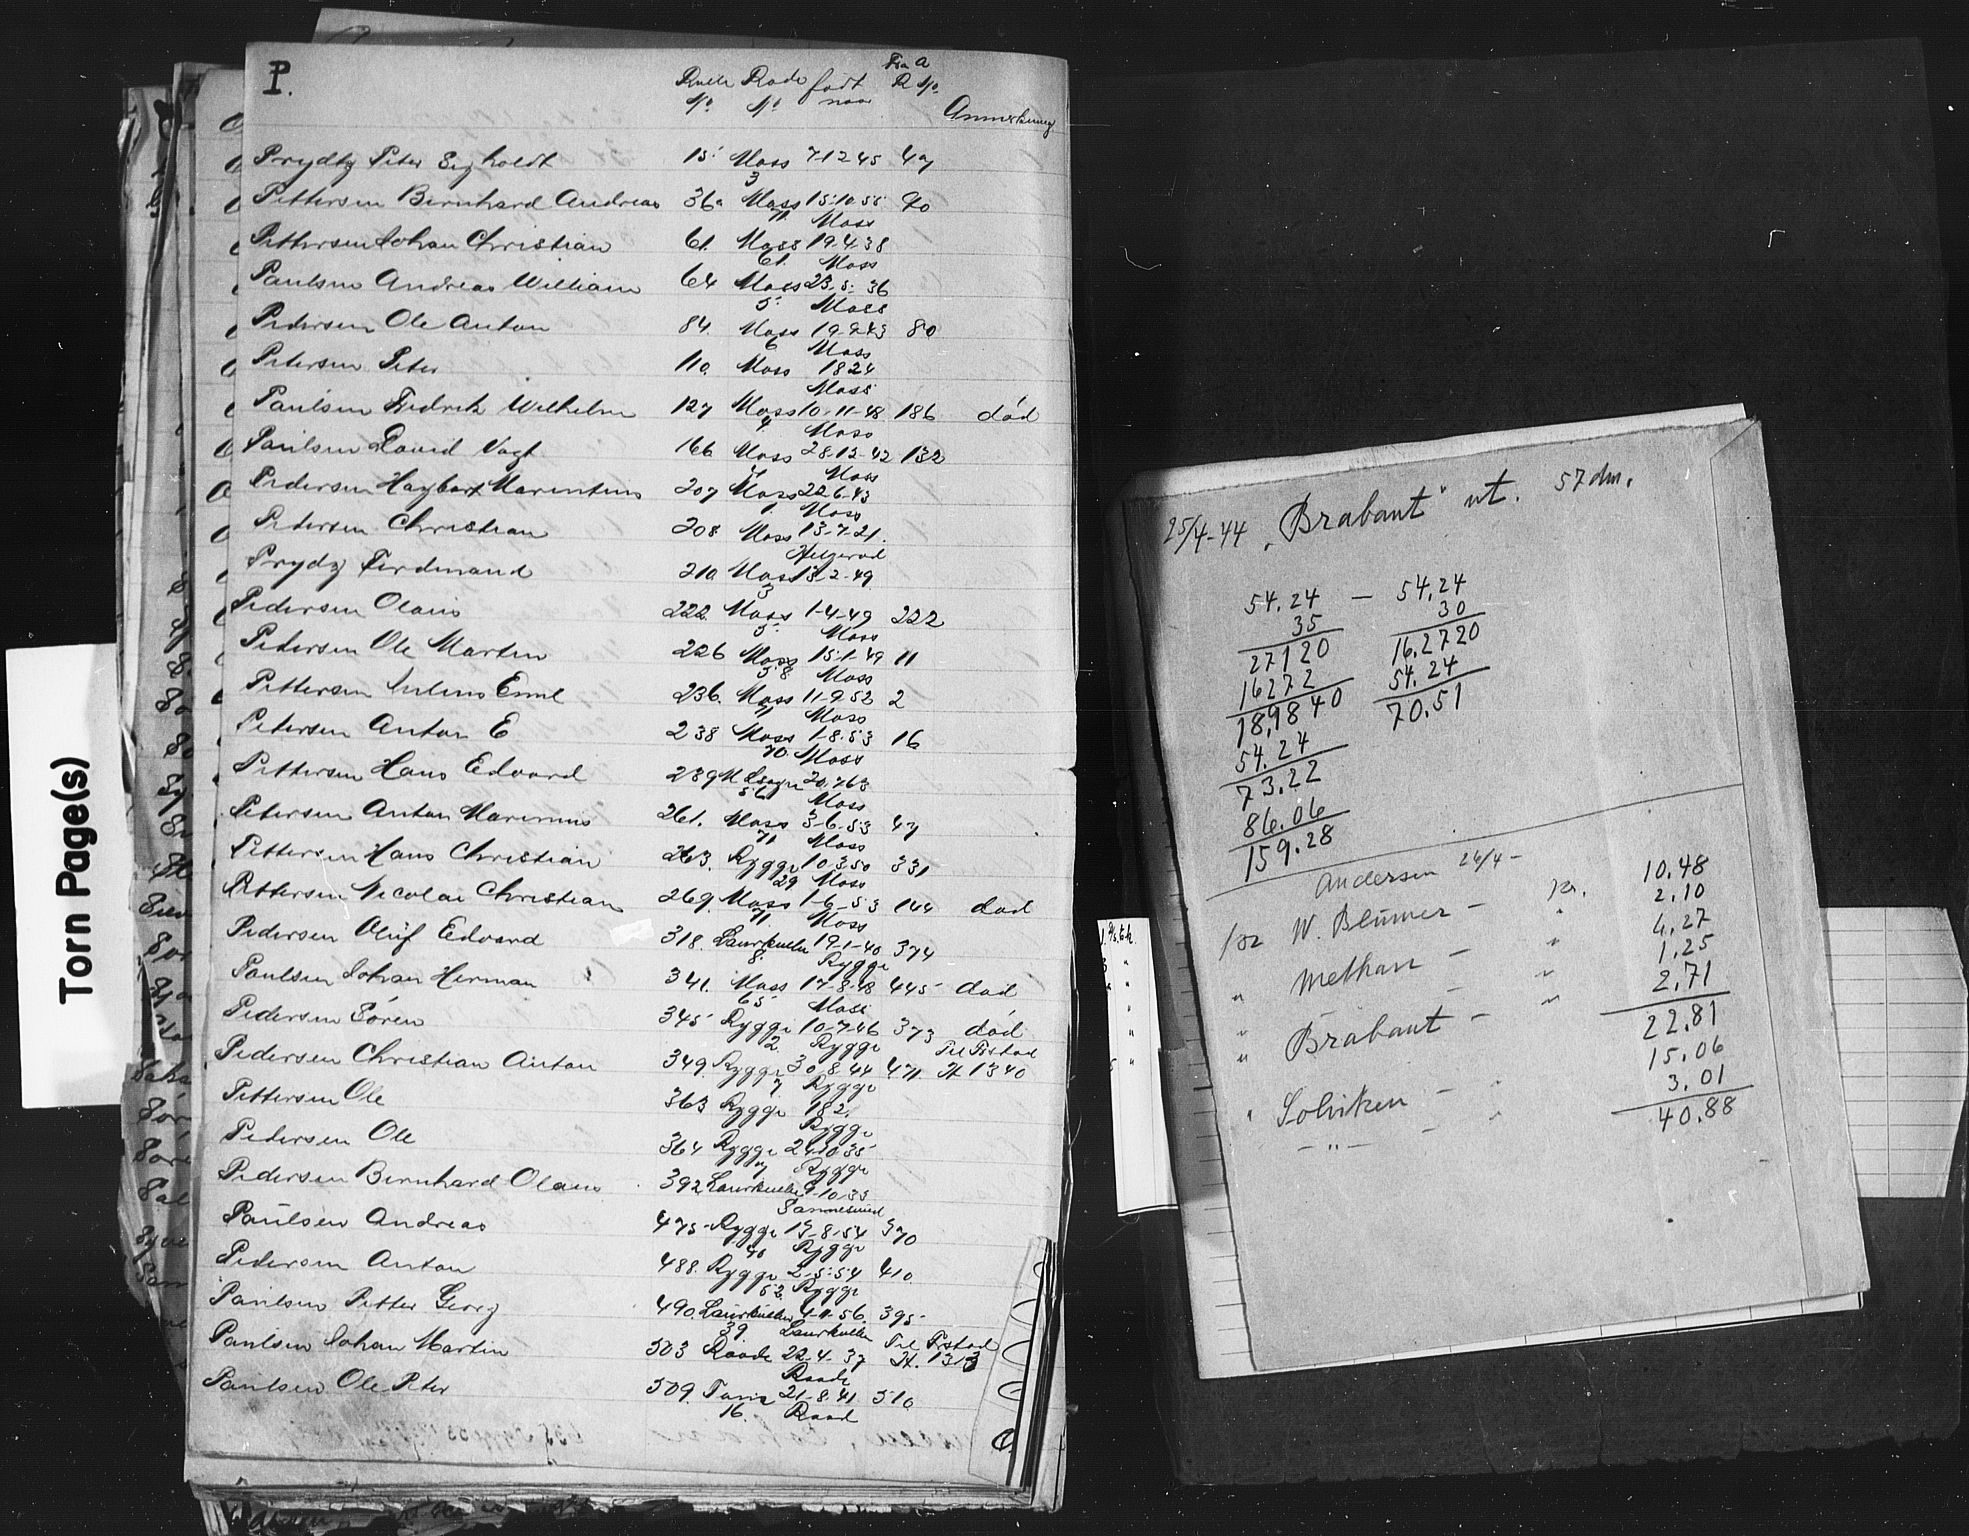 P.
Rulle Rode født Fra A
No. No. naar R No. Anmerkning
Prydtz Peter Sigholdt 15 Moss 7-12 45 49
3
Pettersen Bernhard Andreas 36a Moss 15-10-55 40
71 Moss
Pettersen Johan Christian 61. Moss 19-4-38
61. Moss
Paulsen Andreas William 64 Moss 23-5-36
5 Moss
Pedersen Ole Anton 84. Moss 19-9-43 80
6 Moss
Petersen Peter 110. Moss 1824
Moss
Paulsen Fredrik Wilhelm 127 Moss 10-11-48 186 död
4 Moss
Paulsen David Vogt 166 Moss 28-12-42 132
Moss
Pedersen Haybart Marentius 207 Moss 22-6-43
1. Moss
Petersen Christian 208 Moss 13-7-21.
Prydz Ferdinand 210 Moss 13-2-49
3
Pedersen Olaus 222. Moss 1-4-49 222
5. Moss
Pedersen Ole Martin 226 Moss 15-1-49 11
38 Moss
Pettersen Julius Emil 236. Moss 11-9 52 2
71 Moss
Petersen Anton E 238 Moss 1-8-53 16
70. Moss
Pettersen Hans Edvard 239 M Lsogn 20-7 63
56 Moss
Petersen Anton Marinius 261. Moss 3-6-53 47
71 Moss
Pettersen Hans Christian 263. Rygge 10-3 50 331
29 Moss
Pettersen Nicolai Christian 269. Moss 1-6-53 144 död
71 Moss
Pedersen Oluf Edvard 318. Laurkullen 19-1-40 374
8. Rygge
Paulsen Johan Herman 341. Moss 17-8-48 445 död
65 Moss
Pedersen Sören 345 Rygge 10-7-46 373 död
2. Rygge Til Frstad
Pedersen Christian Anton 349. Rygge 30-8-44 471. H 1340
7 Rygge
Pettersen Ole 363 Rygge 182.
Rygge
Pedersen Ole 364 Rygge 24-10 35
7 Rygge
Pedersen Bernhard Olaus 392 Laurkullen 9-10-33
Sannesund
Paulsen Andreas 475 Rygge 17-8-54 370
40 Rygge
Pedersen Anton 488. Rygge 2-5-54 410
52. Rygge
Paulsen Petter Georg 490. Laurkullen 4-11-56. 395
39 Laurkullen Til Frstad
Paulsen Johan Martin 503 Raade 22-4-37 H. 1313
Raade
Paulsen Ole Peter 509. Tunis 21-8-41 510
16. Raad
Torn Page(s)
25/4-44 „Brabant" ut. 57 dm.
54.24 — 54.24
35 30
27120 16.2720
16272 54.24
18,9840 70.51
54.24
73.22
86.06
159.28
Andersen 26/4 - 10.48
for W. Blumer - kr. 2.10
" 4.27
" Methan - " 1.25
" - " 2.71
" Brabant - " 22.81
15.06
" Solviken - " 3.01
- " - - " 40.88